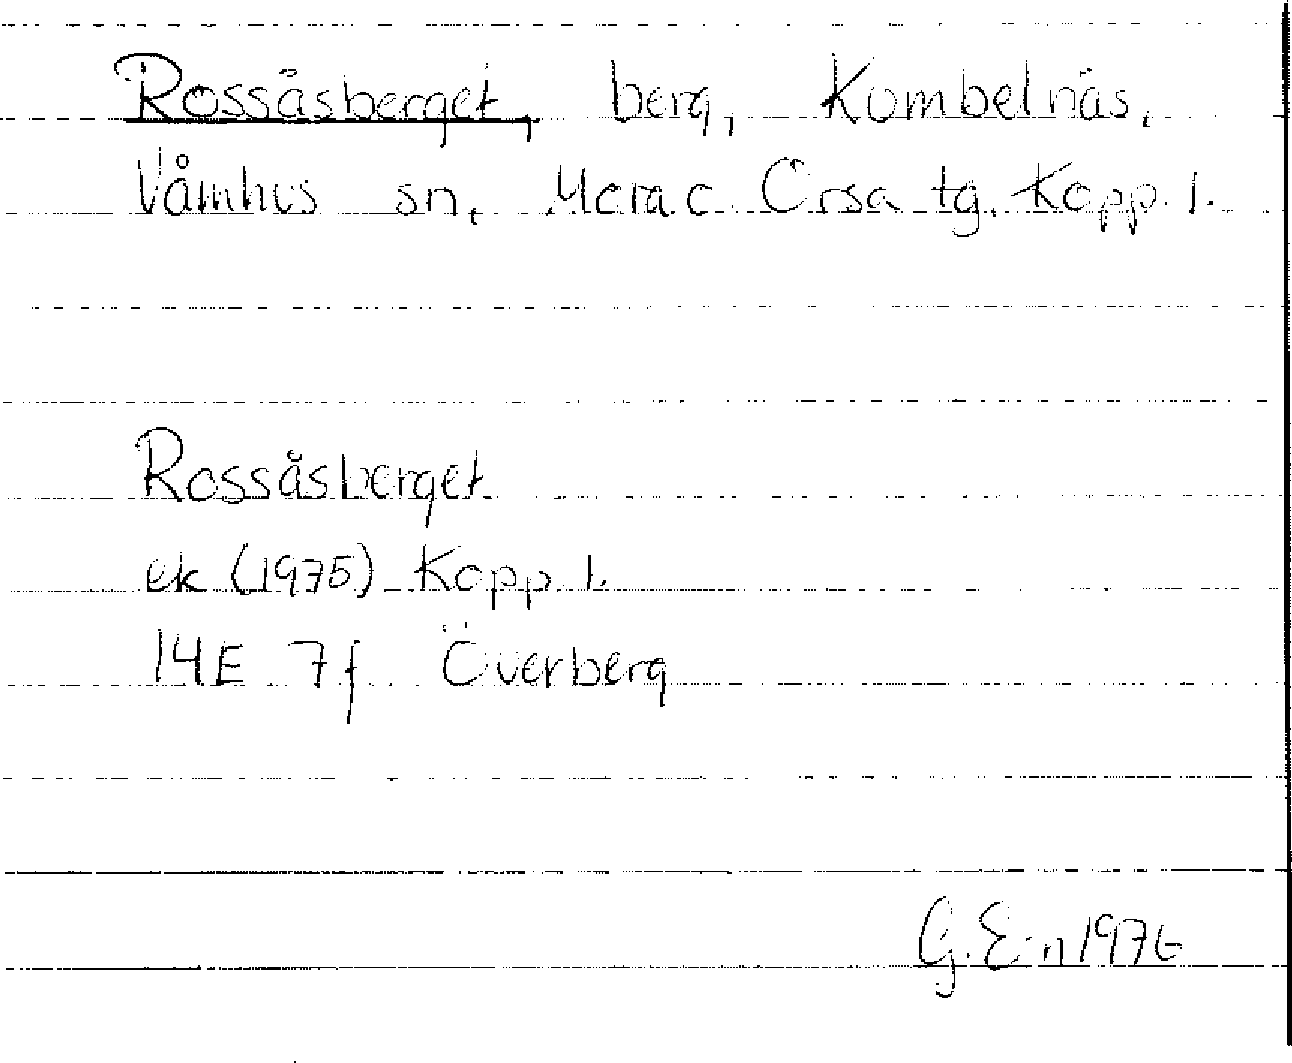 Rossåsberget, berg, Kumbelnäs,
Våmhus sn, Mora o Orsa tg. Kopp. l.
Rossåsberget
ek (1975) Kopp. l.
14E 7f Överberg
G. E-n 1976